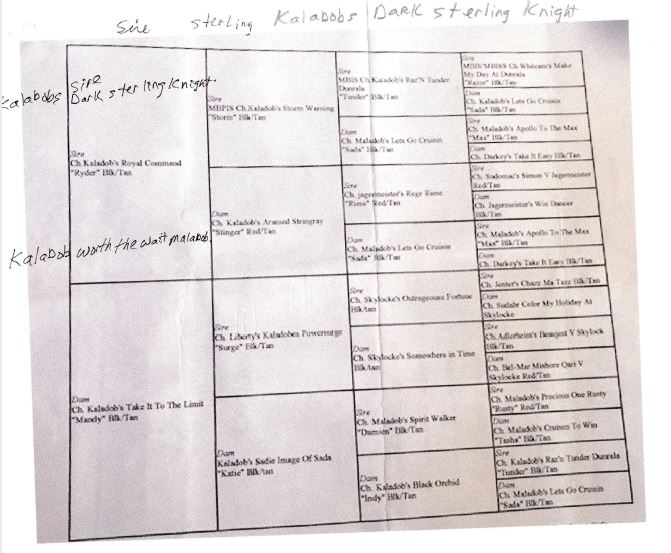 Sire sterling Kalabobs Dark sterling Knight
Kalabobs Sire
Dark sterling Knight.
Sire
Ch Kaladob's Royal Command
"Ryder" Blk/Tan
Kalabob worth the wait malabob
Dam
Ch. Kaladob's Take It To The Limit
"Mandy" Blk/Tan
Sire
MBPIS Ch.Kaladob's Storm Warning
"Storm" Blk/Tan
Dam
Ch. Kaladob's Aramed Stringray
"Stinger" Red/Tan
Sire
Ch. Liberty's Kaladobes Powersurge
"Surge" Blk/Tan
Dam
Kaladob's Sadie Image Of Sada
"Katie" Blk/tan
Sire
MBIS Ch.Kaladob's Raz'N Tunder
Dunrala
"Tunder" Blk/Tan
Dam
Ch. Maladob's Lets Go Cruisin
"Sada" Blk/Tan
Sire
Ch. jagermeister's Rege Riese
"Riese" Red/Tan
Dam
Ch. Maladob's Lets Go Cruisin
"Sada" Blk/Tan
Sire
Ch. Skylocke's Outregeouse Fortune
Blk/tan
Dam
Ch. Skylocke's Somewhere in Time
Blk/tan
Sire
Ch. Maladob's Spirit Walker
"Damien" Blk/Tan
Dam
Ch. Kaladob's Black Orchid
"Indy" Blk/Tan
Sire
MBIS/MBISS Ch. Whitcam's Make
My Day At Dunrala
"Razor" Blk/Tan
Dam
Ch. Kaladob's Lets Go Cruisin
"Sada" Blk/Tan
Sire
Ch. Maladob's Apollo To The Max
"Max" Blk/Tan
Dam
Ch. Darkey's Take It Easy Blk/Tan
Sire
Ch. Sudomac's Simon V Jagermeister
Red/Tan
Dam
Ch. Jagermeister's Win Dancer
Blk/Tan
Sire
Ch. Maladob's Apollo To The Max
"Max" Blk/Tan
Dam
Ch. Darkey's Take It Easy Blk/Tan
Sire
Ch. Jenter's Chazz Ma Tazz Blk/Tan
Dam
Ch. Sudabr Color My Holiday At
Skylocke
Sire
Ch. Adlerheim's Beaujest V Skylock
Blk/Tan
Dam
Ch. Bel-Mar Mishore Quri V
Skylocke Red/Tan
Sire
Ch. Maladob's Precious One Rusty
"Rusty" Red/Tan
Dam
Ch. Maladob's Cruisen To Win
"Tasha" Blk/Tan
Sire
Ch. Kaladob's Raz'n Tunder Dunrala
"Tunder" Blk/Tan
Dam
Ch. Maladob's Lets Go Cruisin
"Sada" Blk/Tan